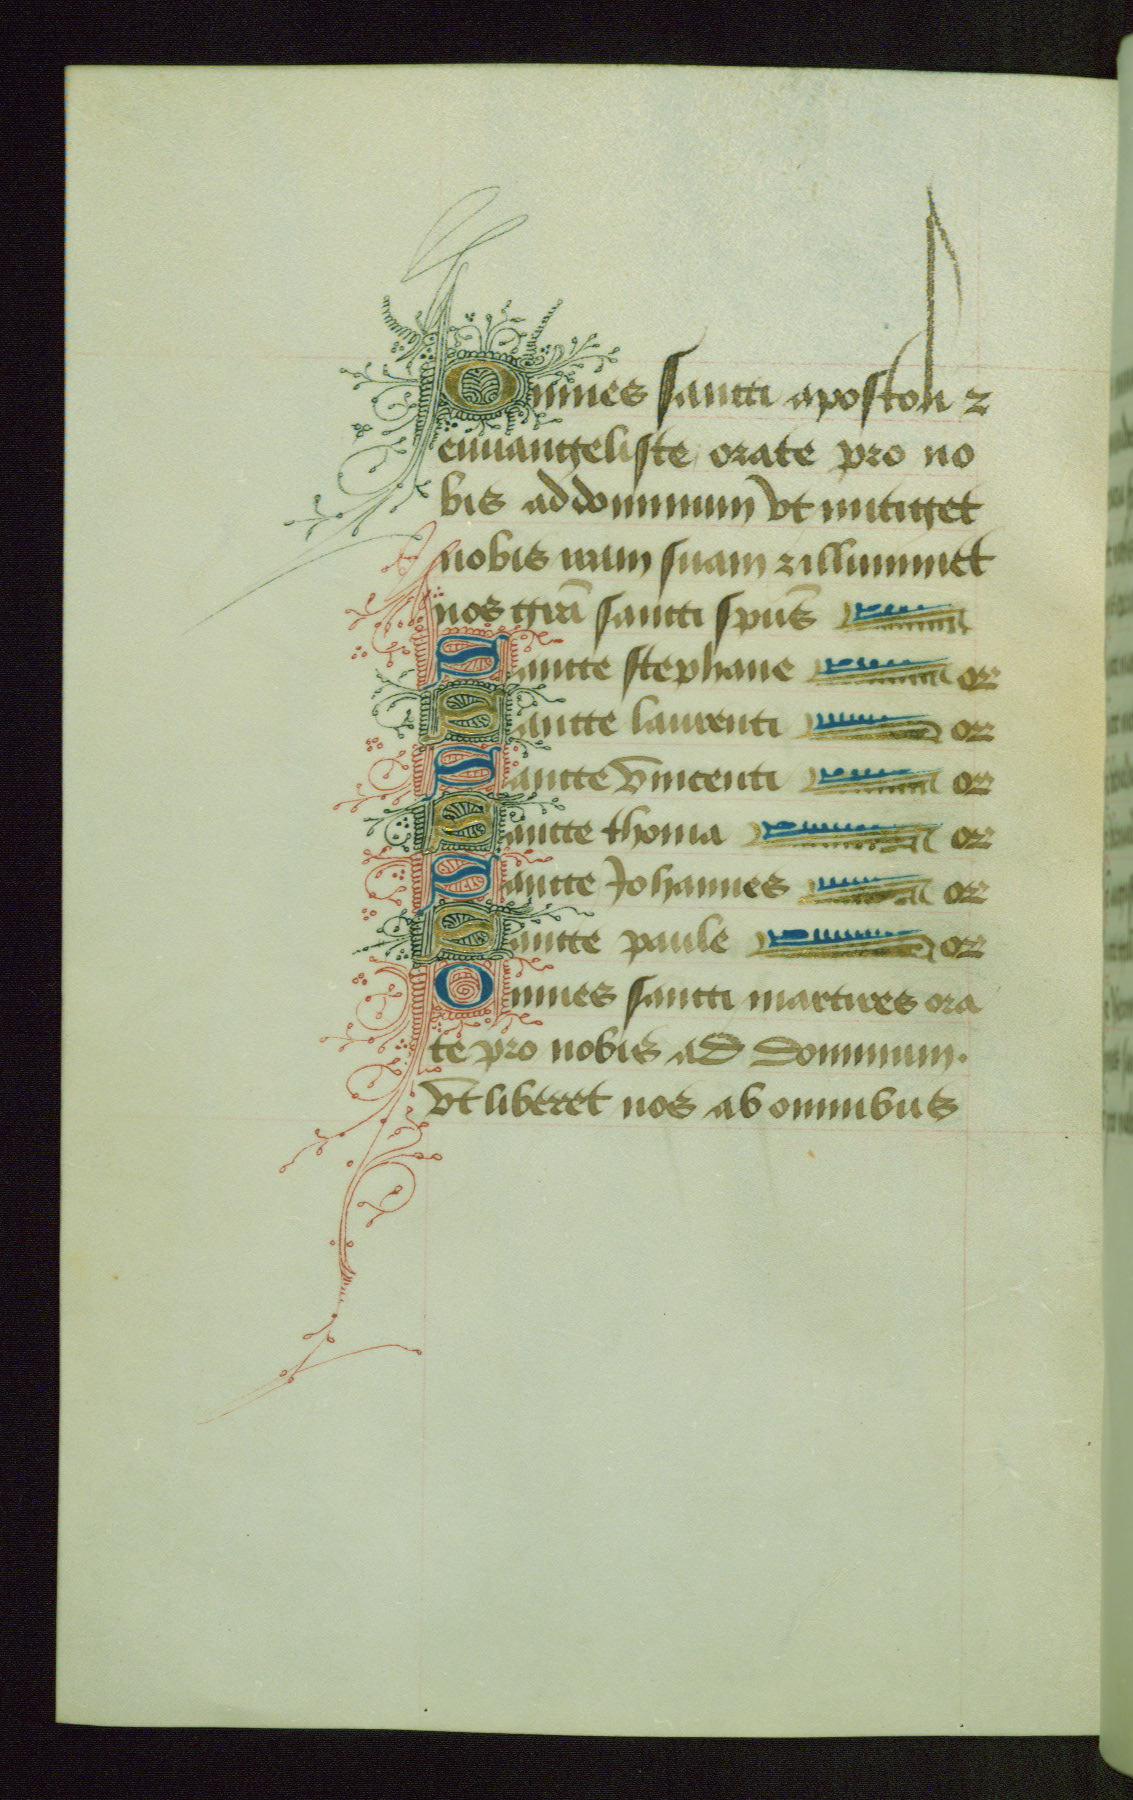 Omnes sancti apostoli ⁊
euuangeliste orate pro no
bis ad dominum vt mitiget
nobis iram suam ⁊ illuminet
nos gr̄a sancti sp̄us
Sancte stephane or
Sancte laurenti or
Sancte vincenti or
Sancte thoma or
Sancte Johannes or
Sancte paule or
Omnes sancti martires ora
te pro nobis ad dominum.
vt liberet nos ab omnibus